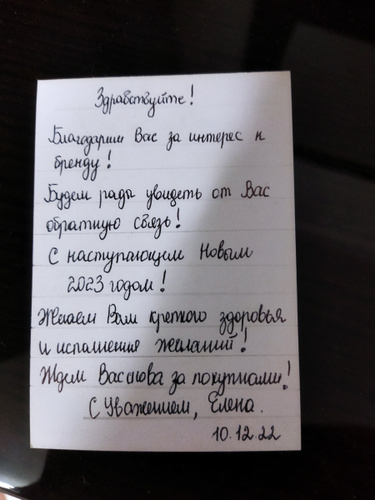 Здравствуйте!
Благодарим Вас за интерес к
бренду!
Будем рады увидеть от Вас
обратную связь!
С наступающим Новым
2023 годом!
Желаем Вам крепкого здоровья
и исполнения желаний!
Ждем Вас снова за покупками!
С Уважением, Елена.
10.12.22